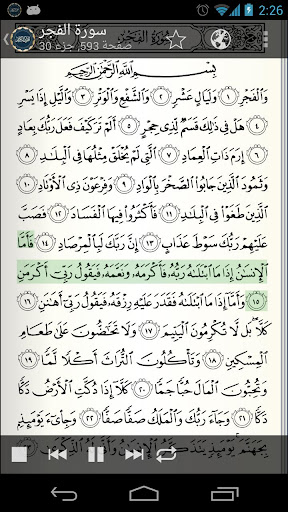 2:26
سورة الفجر
صفحة 593, جزء 30
بِسْمِ اللَّهِ الرَّحْمَٰنِ الرَّحِيمِ
وَالْفَجْرِ ١ وَلَيَالٍ عَشْرٍ ٢ وَالشَّفْعِ وَالْوَتْرِ ٣ وَاللَّيْلِ إِذَا يَسْرِ
٤ هَلْ فِي ذَٰلِكَ قَسَمٌ لِّذِي حِجْرٍ ٥ أَلَمْ تَرَ كَيْفَ فَعَلَ رَبُّكَ بِعَادٍ
٦ إِرَمَ ذَاتِ الْعِمَادِ ٧ الَّتِي لَمْ يُخْلَقْ مِثْلُهَا فِي الْبِلَادِ ٨
وَثَمُودَ الَّذِينَ جَابُوا الصَّخْرَ بِالْوَادِ ٩ وَفِرْعَوْنَ ذِي الْأَوْتَادِ ١٠
الَّذِينَ طَغَوْا فِي الْبِلَادِ ١١ فَأَكْثَرُوا فِيهَا الْفَسَادَ ١٢ فَصَبَّ
عَلَيْهِمْ رَبُّكَ سَوْطَ عَذَابٍ ١٣ إِنَّ رَبَّكَ لَبِالْمِرْصَادِ ١٤ فَأَمَّا
الْإِنسَانُ إِذَا مَا ابْتَلَاهُ رَبُّهُ فَأَكْرَمَهُ وَنَعَّمَهُ فَيَقُولُ رَبِّي أَكْرَمَنِ
١٥ وَأَمَّا إِذَا مَا ابْتَلَاهُ فَقَدَرَ عَلَيْهِ رِزْقَهُ فَيَقُولُ رَبِّي أَهَانَنِ
١٦ كَلَّا بَل لَّا تُكْرِمُونَ الْيَتِيمَ ١٧ وَلَا تَحَاضُّونَ عَلَىٰ طَعَامِ
الْمِسْكِينِ ١٨ وَتَأْكُلُونَ التُّرَاثَ أَكْلًا لَّمًّا ١٩
وَتُحِبُّونَ الْمَالَ حُبًّا جَمًّا ٢٠ كَلَّا إِذَا دُكَّتِ الْأَرْضُ دَكًّا
دَكًّا ٢١ وَجَاءَ رَبُّكَ وَالْمَلَكُ صَفًّا صَفًّا ٢٢ وَجِيءَ يَوْمَئِذٍ
بِجَهَنَّمَ يَوْمَئِذٍ يَتَذَكَّرُ الْإِنسَانُ وَأَنَّىٰ لَهُ الذِّكْرَىٰ